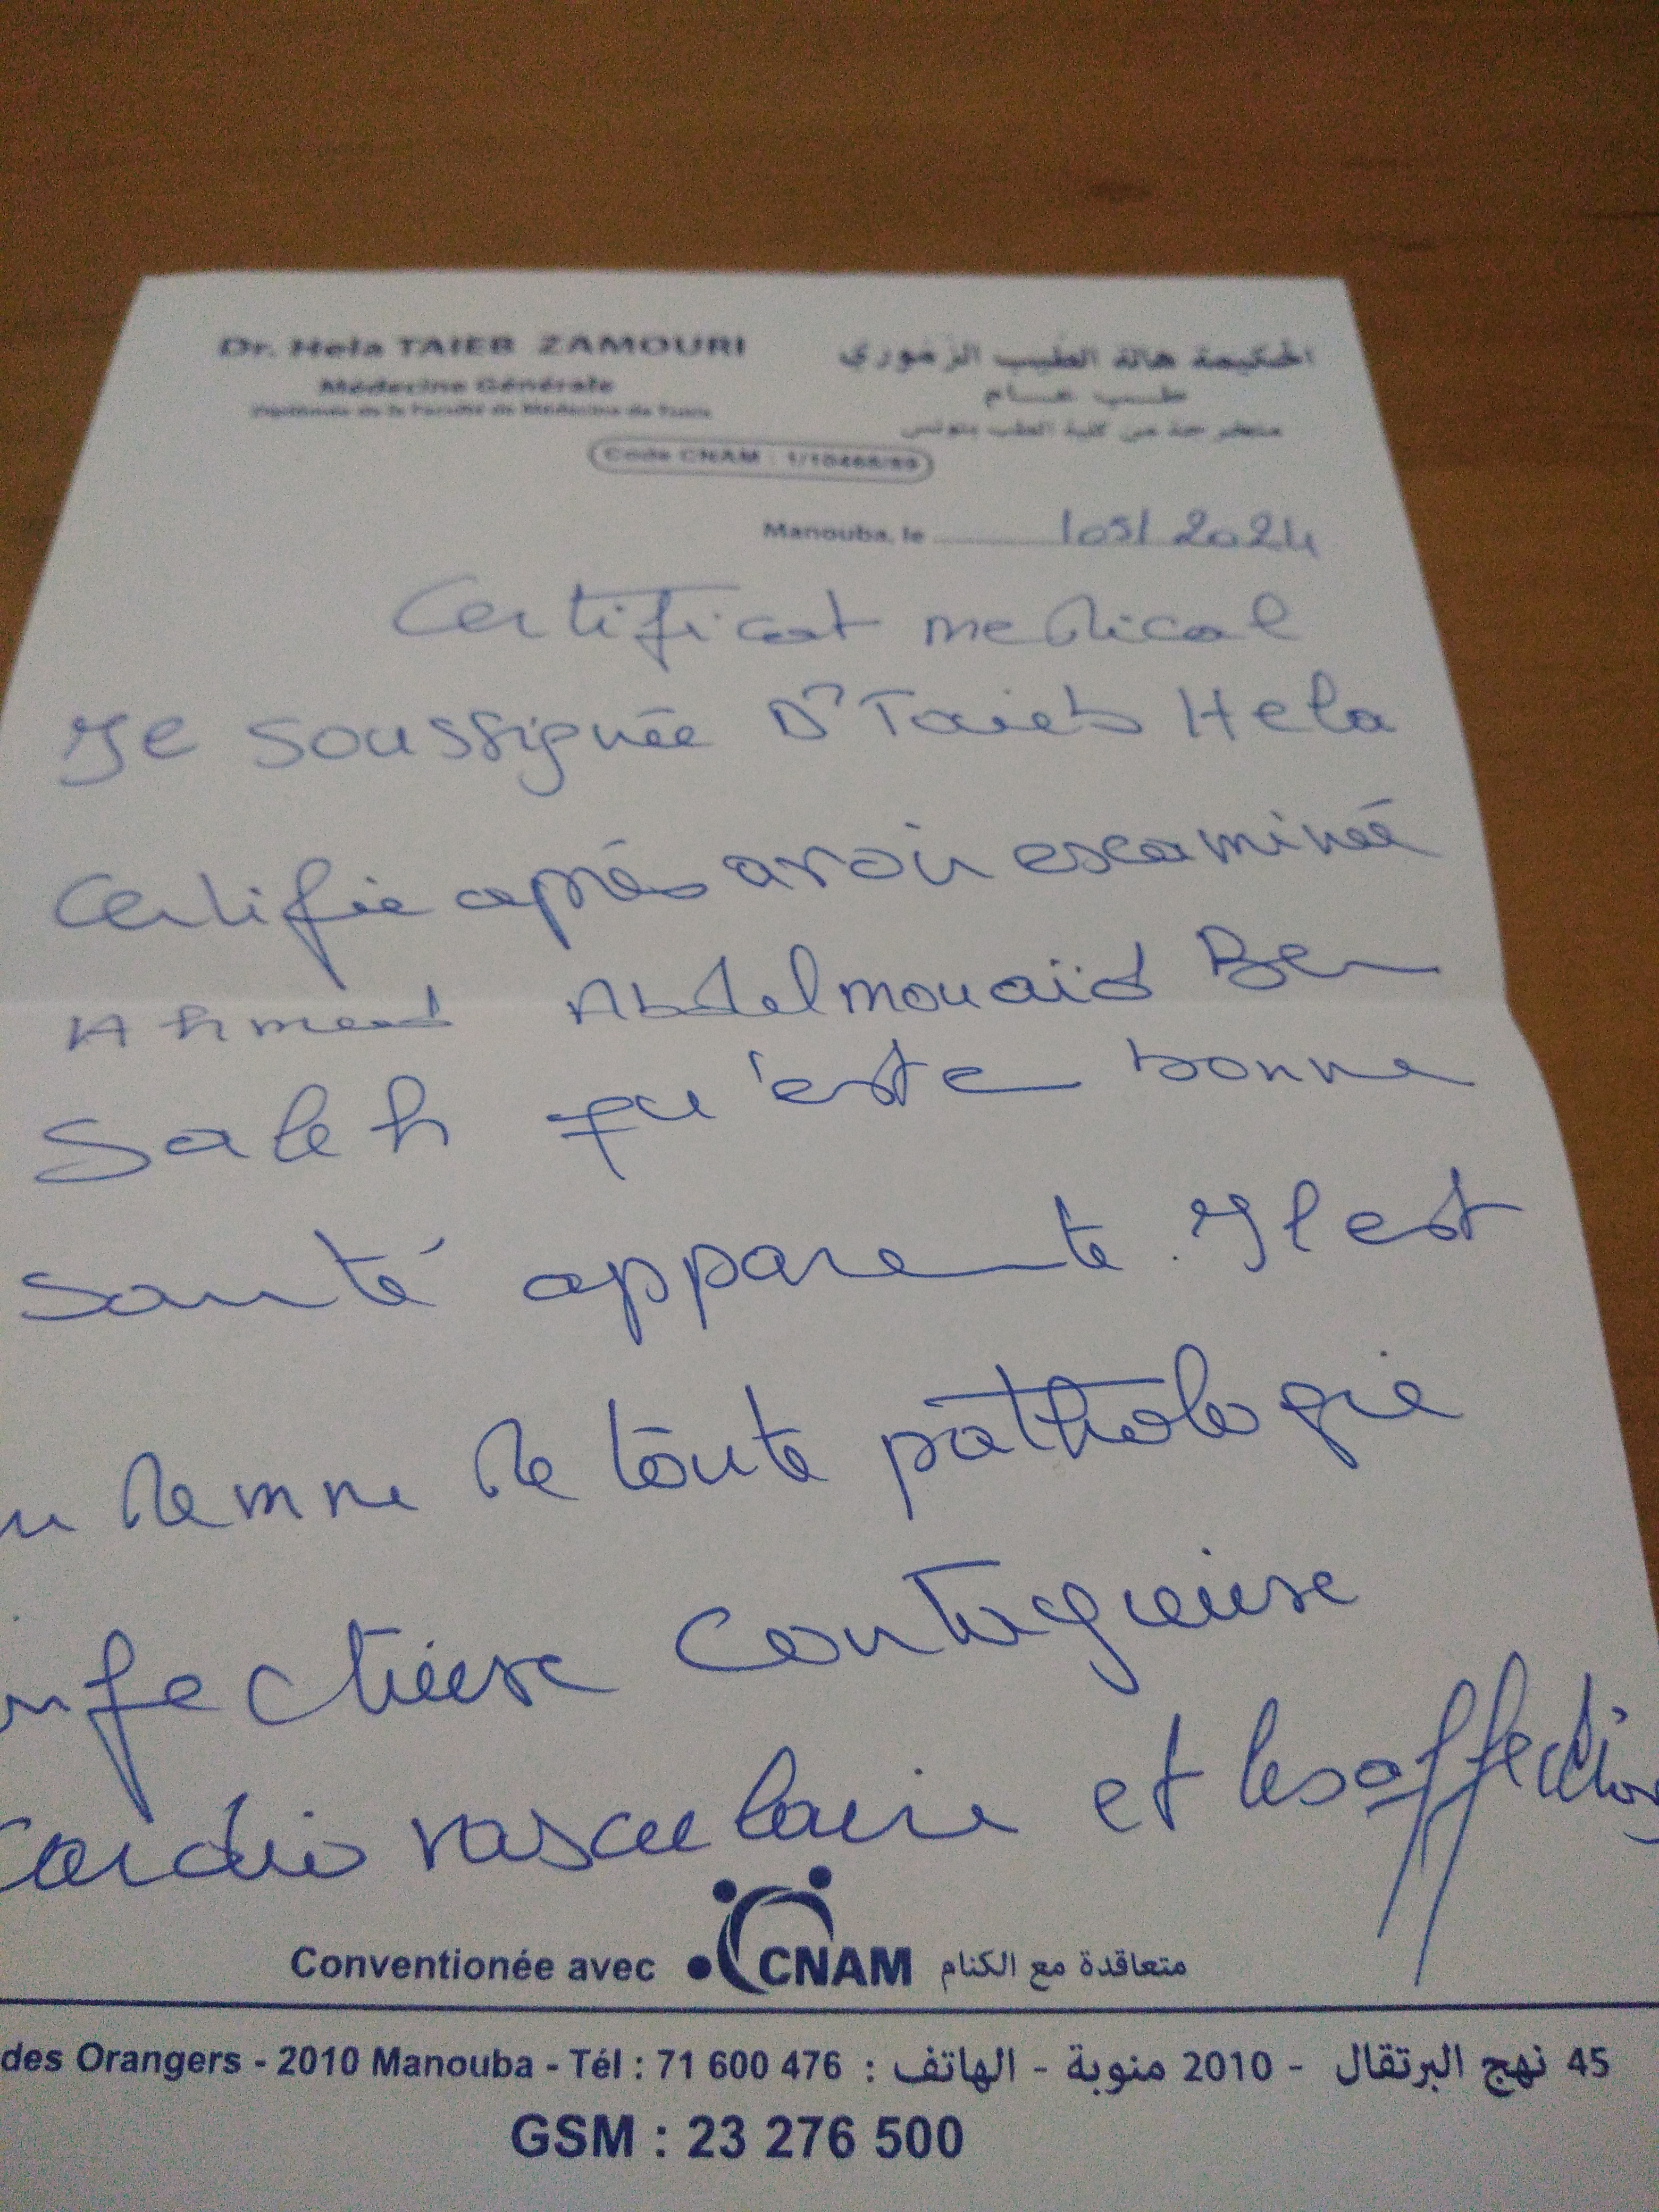 Dr. Hela TAIEB ZAMOURI
الحكيمة هالة الطيب الزموري
Médecine Générale
طب عام
Diplômée de la Faculté de Médecine de Tunis
متخرجة من كلية الطب بتونس
Code CNAM :
Manouba, le /05/2024
Certificat medical
Je soussignée Dr Taieb Hela
Certifie après avoir examinée
Ahmed Abdelmouaïd Ben
Saleh qu'este bonne
santé apparente. Il est
demne de toute pathologie
infectieuse contagieuse
cardio vasculaire et les affection
Conventionée avec CNAM متعاقدة مع الكنام
des Orangers - 2010 Manouba - Tél : 71 600 476 : الهاتف - منوبة 2010 - نهج البرتقال 45
GSM : 23 276 500